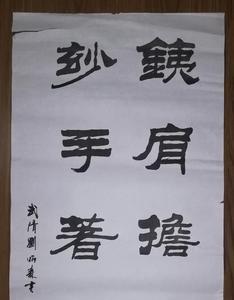 銕肩擔
玅手著
武清劉炳森書